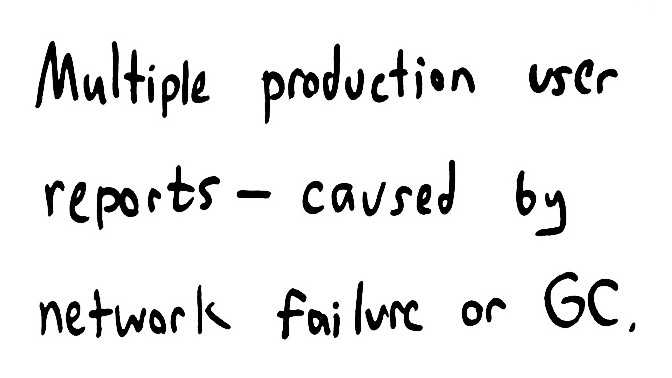 Multiple production user
reports – caused by
network failure or GC.